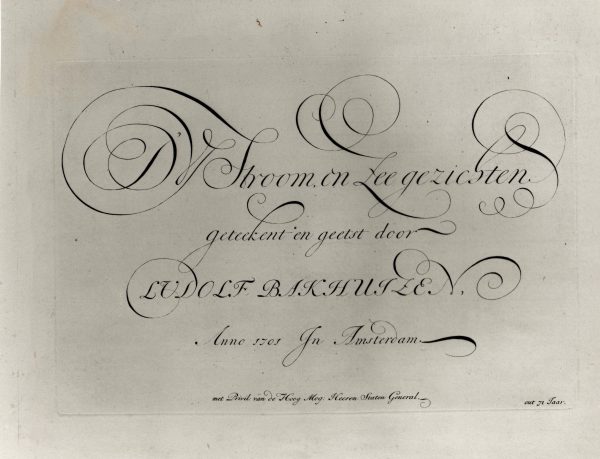 D'Y Stroom, en Zee gezichten
geteekent en geetst door
LUDOLF BAKHUIZEN,
Anno 1701 In Amsterdam
met Privil van de Hoog Mog: Heeren Staten General.
out 71 Jaar.